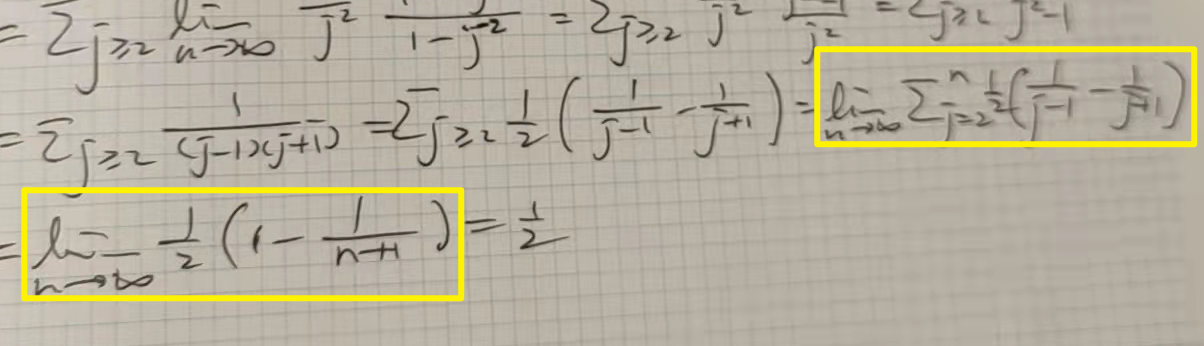 = Σ_{j≥2} lim_{n→∞} 1/j² 1/(1-j⁻²) = Σ_{j≥2} 1/j² = Σ_{j≥2} 1/(j²-1)
= Σ_{j≥2} 1/((j-1)(j+1)) = Σ_{j≥2} 1/2 (1/(j-1) - 1/(j+1)) = lim_{n→∞} Σ_{j=2}^{n} 1/2 (1/(j-1) - 1/(j+1))
= lim_{n→∞} 1/2 (1 - 1/(n+1)) = 1/2